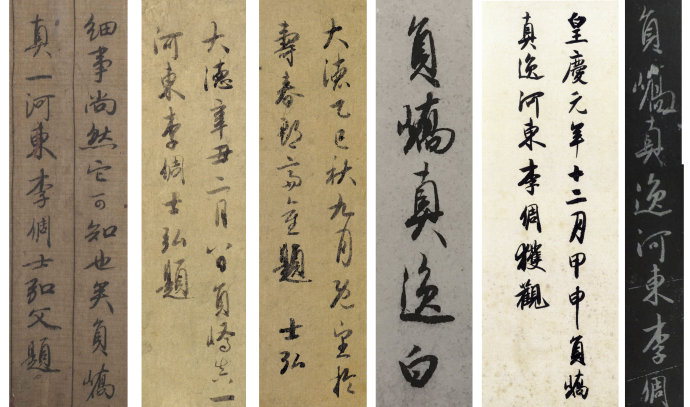 細事尚然它可知也矣員嶠
真一河東李倜士弘父題
大德辛丑二月八日員嶠真一
河東李倜士弘題
大德乙巳秋九月既望於
壽春郡題 士弘
員嶠真逸白
皇慶元年十二月甲申員嶠
真逸河東李倜獲觀
員嶠真逸河東李倜